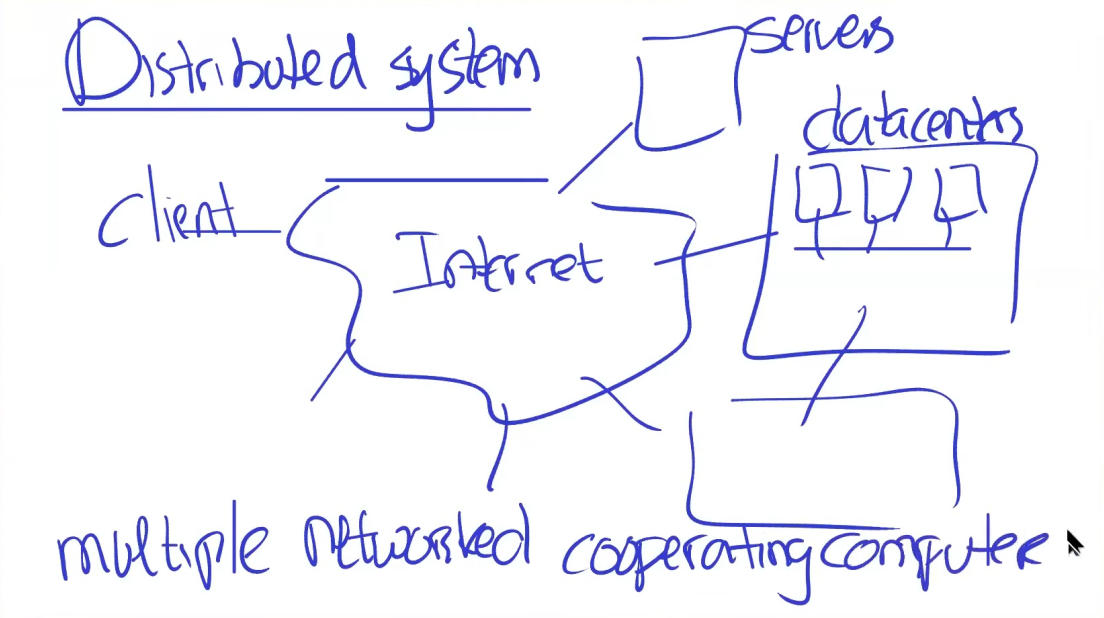 Distributed system
servers
datacenters
client
Internet
multiple networked cooperating computer